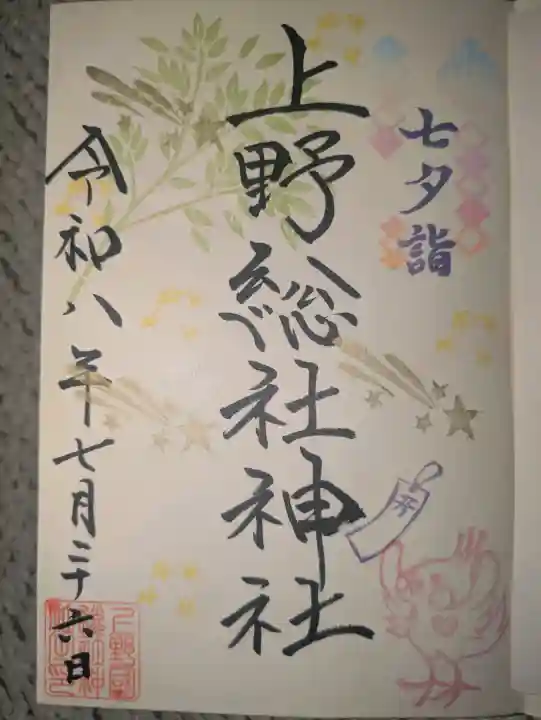 七夕詣
上野總社神社
令和八年七月二十六日